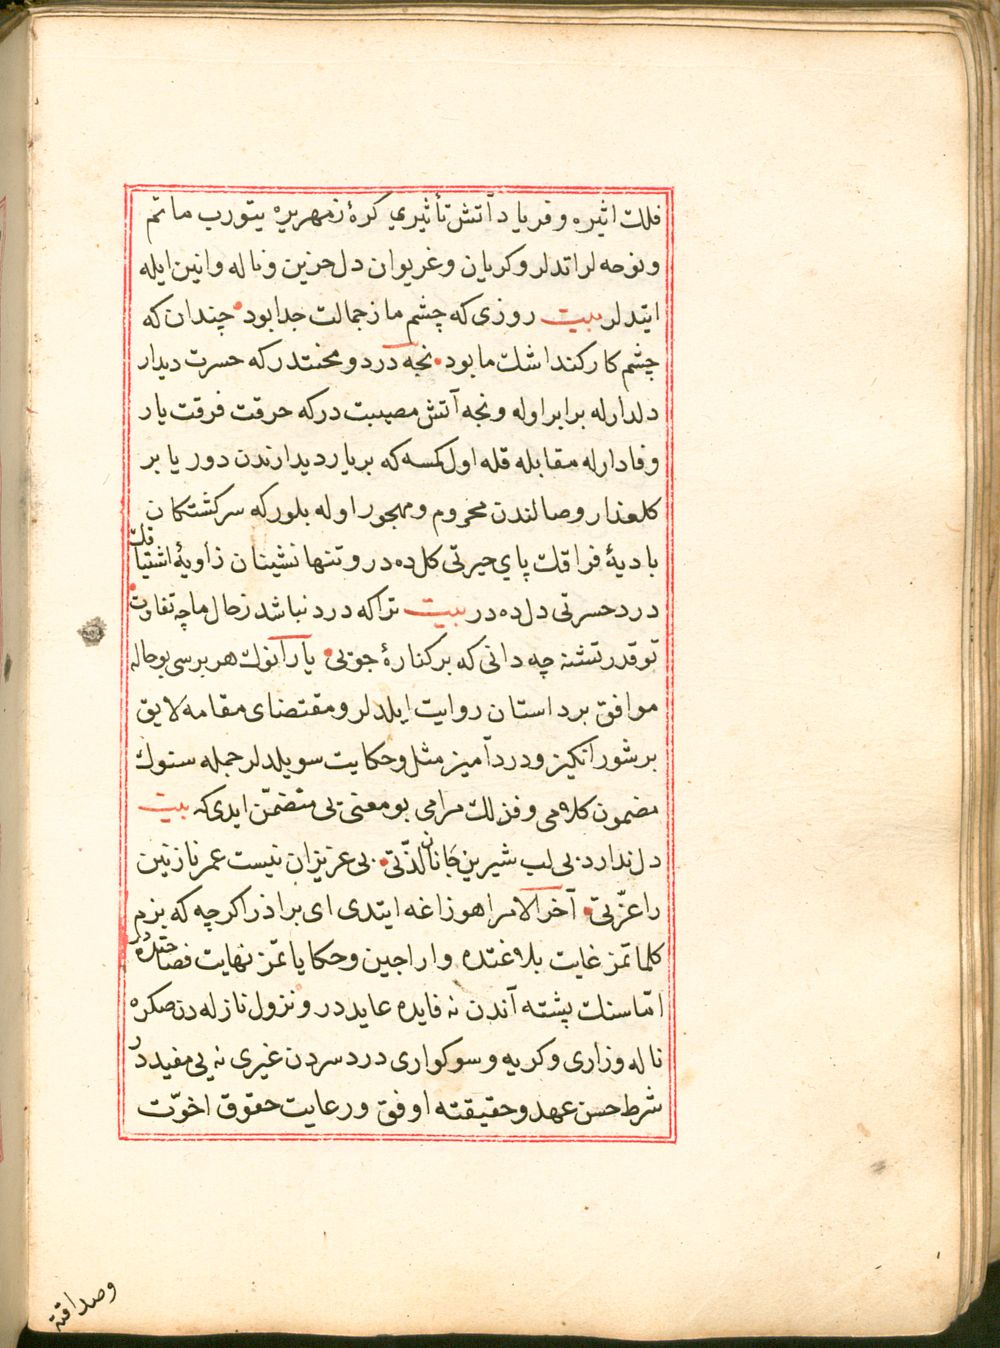 فلك اثيره و فرياد آتش تأثيري كرۀ زمهريره يتورب ماتم
و نوحه لر اتدلر و كريان و غريوان دل حزين و ناله و انين ايله
ايتدلر بيت روزى كه چشم ما ز جمالت جدا بود • چندان كه
چشم كار كند اشك ما بود • نجه درد و محنتدر كه حسرت ديدار
دلدارله برابر اوله و نجه آتش مصيبت در كه حرقت فرقت يار
وفادارله مقابله قله اول كمسه كه بر يار ديدارندن دور يا بر
كلعذار وصالندن محروم و مهجور اوله بلور كه سركشتكان
باديۀ فراقك پاي حيرتى كل ده در و تنها نشينان زاويۀ اشتياقك
درد حسرتى دل ده در بيت ترا كه درد نباشد ز حال ما چه تفاوت •
تو قدر تشنه چه دانى كه بر كنارۀ جويى • يارانوك هر برسى بو حاله
موافق بر داستان روايت ايلدلر و مقتضاى مقامه لايق
بر شور انكيز و درد آميز مثل و حكايت سويلدلر جمله ستوك
مضمون كلامى و فزلك مرامى بو معنى يى متضمّن ايدى كه بيت
دل ندارد بى لب شيرين جانان لذّتى • بى عزيزان نيست عمر نازنين
را عزّتى • آخر الامر اهو زاغه ايتدى اى برادر اكرچه كه بزم
كلماتمز غايت بلاغتده و اراجين و حكاياتمز نهايت فصاحتده در
امّا سنك پشته آندن نه فايده عايد در و نزول نازله دن صكره
ناله و زارى و كريه و سوكوارى درد سردن غيرى نه يى مفيد در
شرط حسن عهد و حقيقته اوفق و رعايت حقوق اخوّت
وصداقته